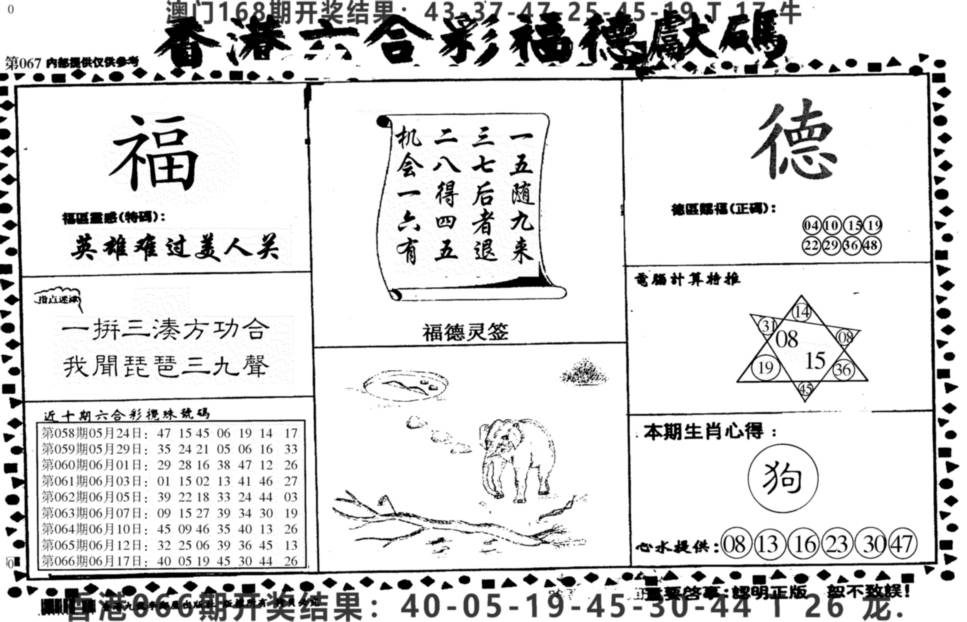 澳门168期开奖结果：43-37-47-25-45-19 T 17 牛
香港六合彩福德獻碼
第067 内部提供仅供参考
福
福區靈感(特碼)：
英雄难过美人关
指点迷津
一拚三湊方功合
我聞琵琶三九聲
近十期六合彩攪珠號碼
第058期05月24日：47 15 45 06 19 14 17
第059期05月29日：35 24 21 05 06 16 33
第060期06月01日：29 28 16 38 47 12 26
第061期06月03日：01 15 02 13 41 46 27
第062期06月05日：39 22 18 33 24 44 03
第063期06月07日：09 15 27 39 34 30 19
第064期06月10日：45 09 46 35 40 13 26
第065期06月12日：32 25 06 39 36 45 13
第066期06月17日：40 05 19 45 30 44 26
一五随九来
三七后者退
二八得四五
机会一六有
福德灵签
德
德區賜福(正碼)：
04 10 15 19
22 29 36 48
電腦計算特推
14
31 08 09
19 15 36
45
本期生肖心得：
狗
心水提供：08 13 16 23 30 47
重要啓事：認明正版 恕不致誤！
香港066期开奖结果：40-05-19-45-30-44 T 26 龙.